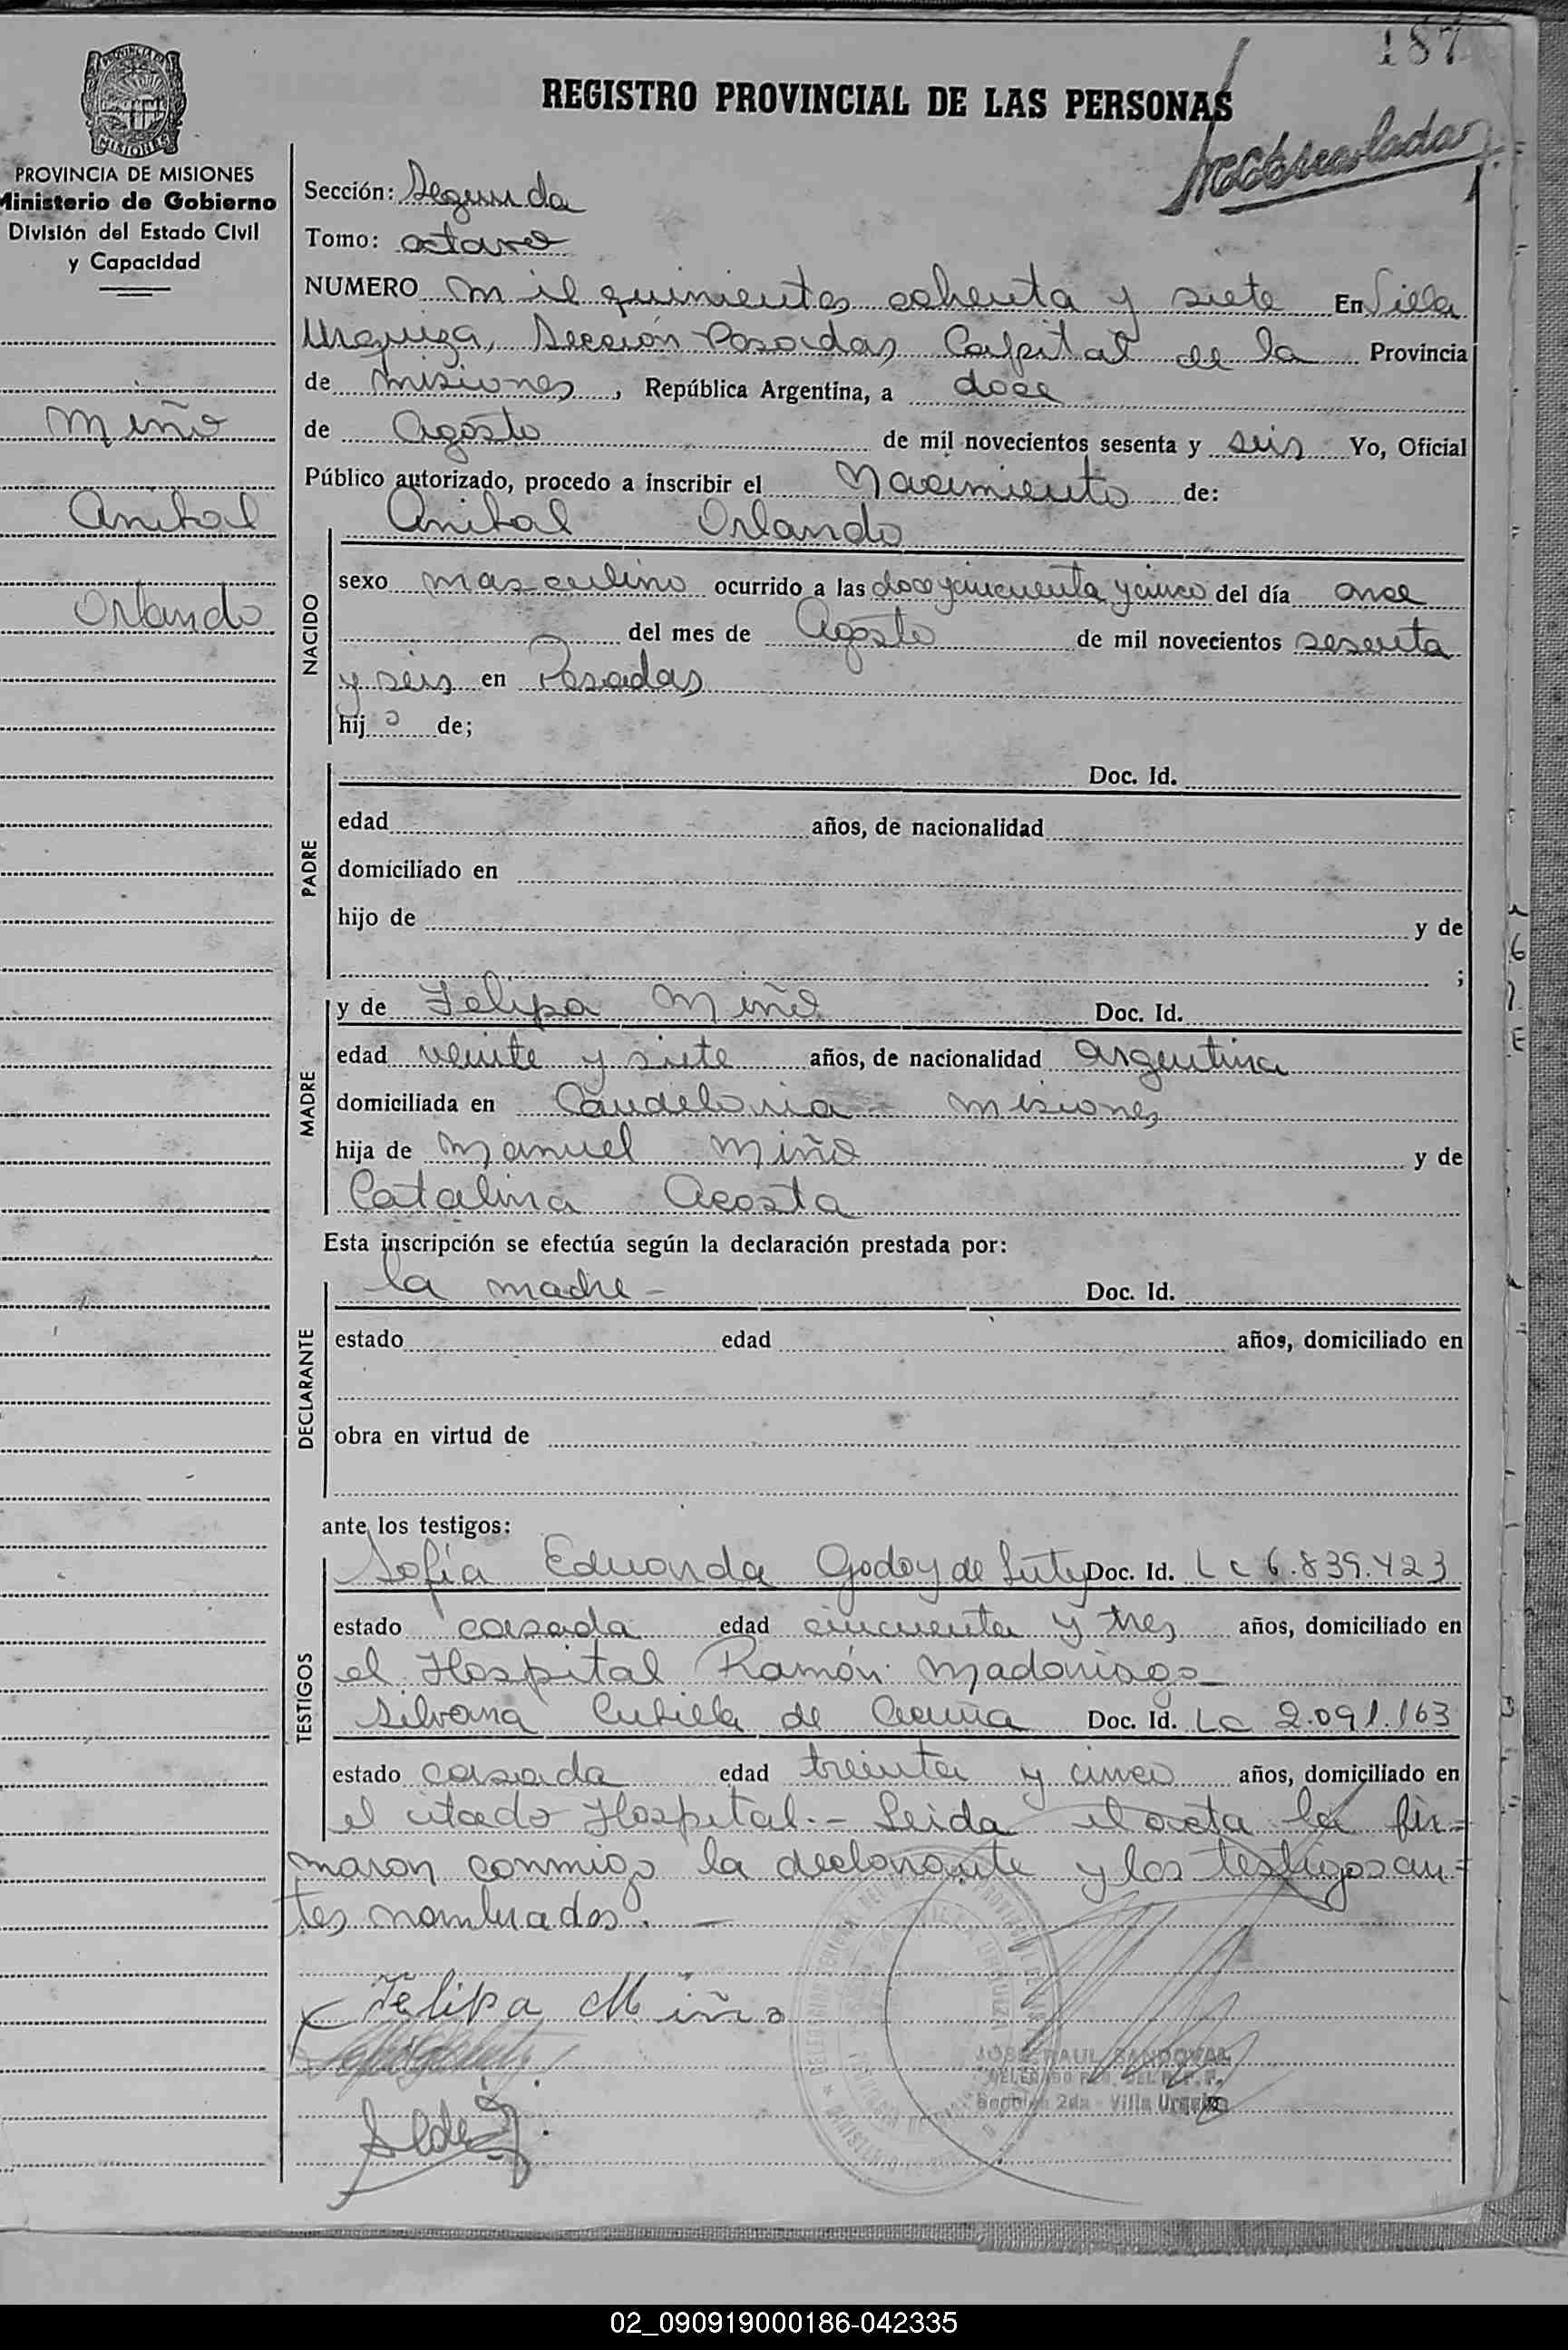 187
PROVINCIA DE MISIONES
Ministerio de Gobierno
División del Estado Civil
y Capacidad
Miño
Anibal
Orlando
REGISTRO PROVINCIAL DE LAS PERSONAS
Sección: Segunda
Tomo: octavo
NUMERO mil quinientos ochenta y siete En Villa
Urquiza, Sección Posadas Capital de la Provincia
de misiones, República Argentina, a doce
de Agosto de mil novecientos sesenta y seis Yo, Oficial
Público autorizado, procedo a inscribir el Nacimiento de:
Anibal Orlando
NACIDO
sexo masculino ocurrido a las doce y cincuenta y cinco del día once
del mes de Agosto de mil novecientos sesenta
y seis en Posadas
hijo de;
PADRE
Doc. Id.
edad años, de nacionalidad
domiciliado en
hijo de y de
;
MADRE
y de Felipa Miño Doc. Id.
edad veinte y siete años, de nacionalidad argentina
domiciliada en Candelaria - misiones
hija de Manuel Miño y de
Catalina Acosta
Esta inscripción se efectúa según la declaración prestada por:
DECLARANTE
la madre - Doc. Id.
estado edad años, domiciliado en
obra en virtud de
ante los testigos:
TESTIGOS
Sofía Eduarda Godoy de Doc. Id. LC 6.839.423
estado casada edad cincuenta y tres años, domiciliado en
el Hospital Ramón Madariaga
Silvana de Acuña Doc. Id. LC 2.091.163
estado casada edad treinta y cinco años, domiciliado en
el citado Hospital.- Leida el acta la fir=
maron conmigo la declarante y los testigos an=
tes nombrados. -
Felipa Miño
JOSE RAUL SANDOVAL
Sección 2da - Villa Urquiza
02_090919000186-042335